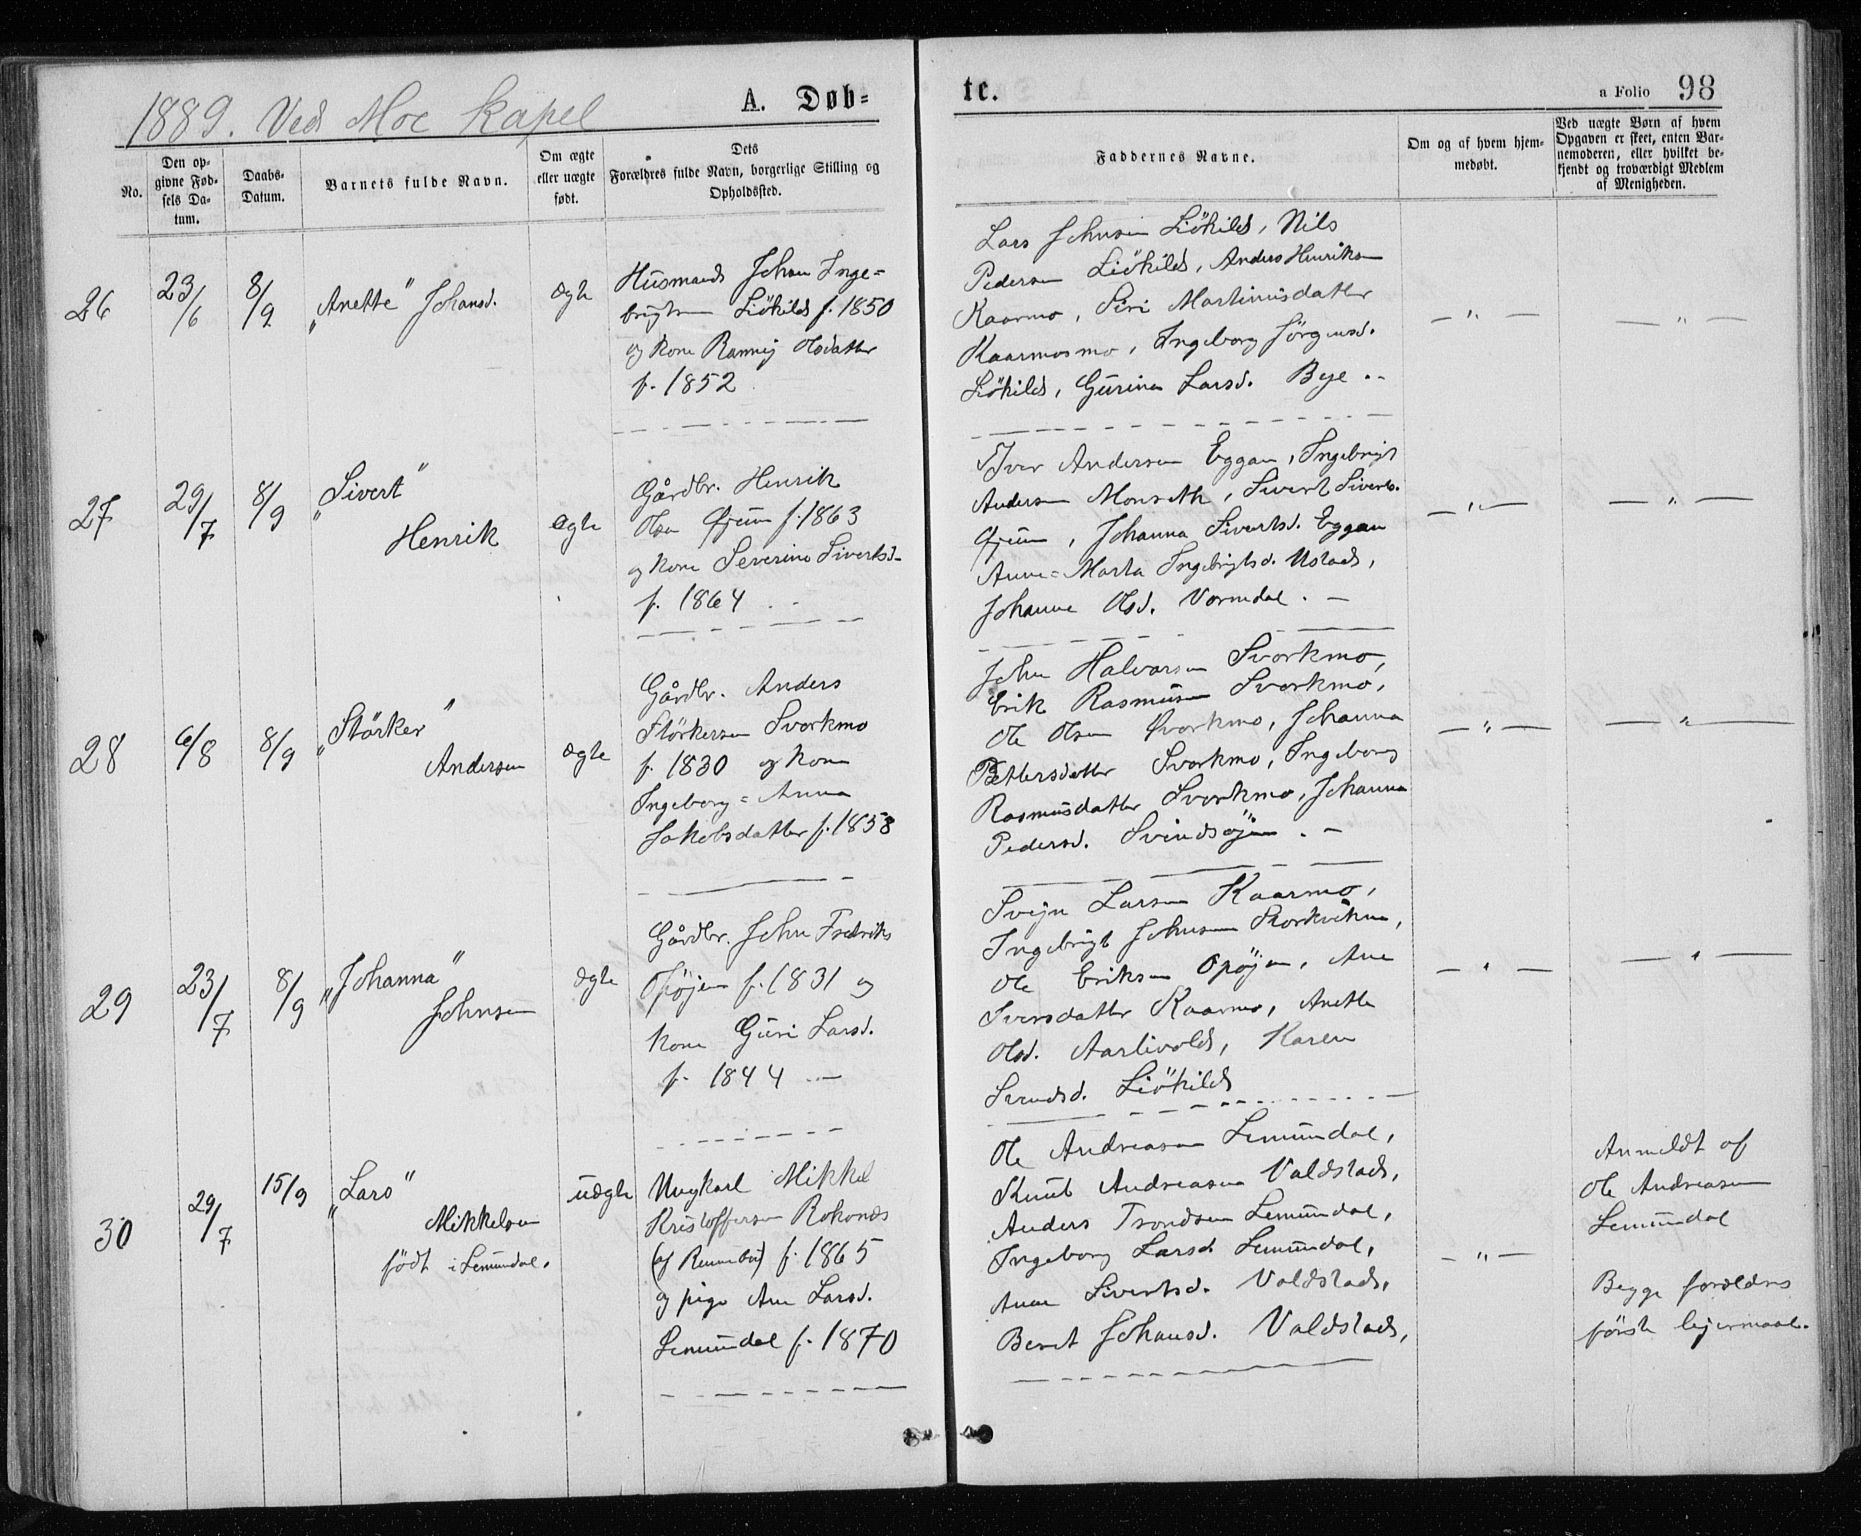 1889. Ved Moe Kapel
A. Døb=
te.
a Folio 98
No.
Den op-
givne Fød-
sels Da-
tum.
Daabs-
Datum.
Barnets fulde Navn.
Om ægte
eller uægte
født.
Dets
Forældres fulde Navn, borgerlige Stilling og
Opholdssted.
Faddernes Navne.
Om og af hvem hjem-
medøbt.
Ved uægte Børn af hvem
Opgaven er skeet, enten Bar-
nemoderen, eller hvilket be-
kjendt og troværdigt Medlem
af Menigheden.
26
23/6
8/9
„Anette" Johansd.
ægte
Husmand Johan Inge=
brigtsen Liökild f. 1850
og kone Rannej Olsdatter
f. 1852
Lars Johnsen Liökild, Nils
Pedersen Liökild, Anders Henriksen
Kaarmo, Siri Martinusdatter
Kaarmosmo, Ingeborg Jörgensd.
Liökild, Gurina Larsd. Bye.-
— „ —
— „ —
27
29/7
8/9
„Sivert"
Henrik
ægte
Gårdbr. Henrik
Olsen f. 1863
og kone Severine Sivertsd-
f. 1864
Iver Andersen Eggan, Ingebrigt
Andersen Monseth, Sivert Siverts.
, Johanna Sivertsd. Eggan
Anne=Marta Ingebrigtsd. Ustad,
Johanne Olsd. Vormdal. -
— „ —
— „ —
28
6/8
8/9
„Störker"
Andersen
ægte
Gårdbr. Anders
Störkersen Svorkmo
f. 1830 og kone
Ingeborg=Anna
Jakobsdatter f. 1853
John Halvorsen Svorkmo,
Erik Rasmusen Svorkmo,
Ole Olsen Svorkmo, Johanna
Pettersdatter Svorkmo, Ingeborg
Rasmusdatter Svorkmo, Johanna
Pedersd. Svindsøjen. -
— „ —
— „ —
29
23/7
8/9
„Johanna"
Johnsen
ægte
Gårdbr. John Fredriks
Opøjen f. 1831 og
kone Guri Larsd.
f. 1844
Svejn Larsen Kaarmo,
Ingebrigt Johnsen Storkvikna,
Ole Eriksen Opøjen, Ane
Iversdatter Kaarmo, Anette
Olsd. Aarlivold, Karen
Svendsd. Liökild
— „ —
— „ —
30
29/7
15/9
„Lars"
Mikkelsen
födt i Lemundal.
uægte
Ungkarl Mikkel
Kristoffersen Rokonæs
(af Rennebu) f. 1865
og pige Ane Larsd.
Lemundal f. 1870
Ole Andreasen Lemundal,
Knut Andreasen Valdstad,
Anders Trondsen Lemundal,
Ingeborg Larsd Lemundal,
Anne Sivertsd. Valdstad,
Beret Johansd. Valdstad,
— „ —
Anmeldt af
Ole Andreasen
Lemundal
Begge forældres
første lejermaal.